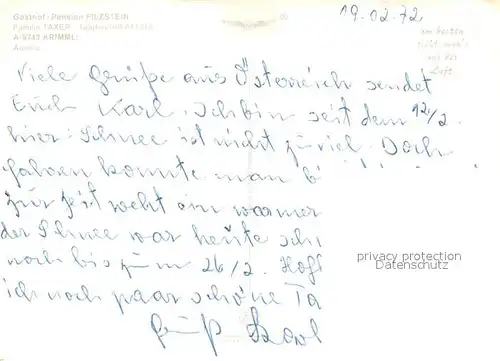 Gasthof-Pension FILZSTEIN
Familie TAXER
A-5743 KRIMML
Austria
19.02.72
am besten
Luft
Viele Grüße aus Österreich sendet
Euch Karl. Ich bin seit dem 12/2.
hier. Schnee ist nicht zu viel. Doch
fahren konnte man
zur Zeit weht ein warmer
der Schnee war heute
noch bis zum 26/2. Hoff
ich noch paar schöne Ta
Gruß Karl
privacy protection
Datenschutz